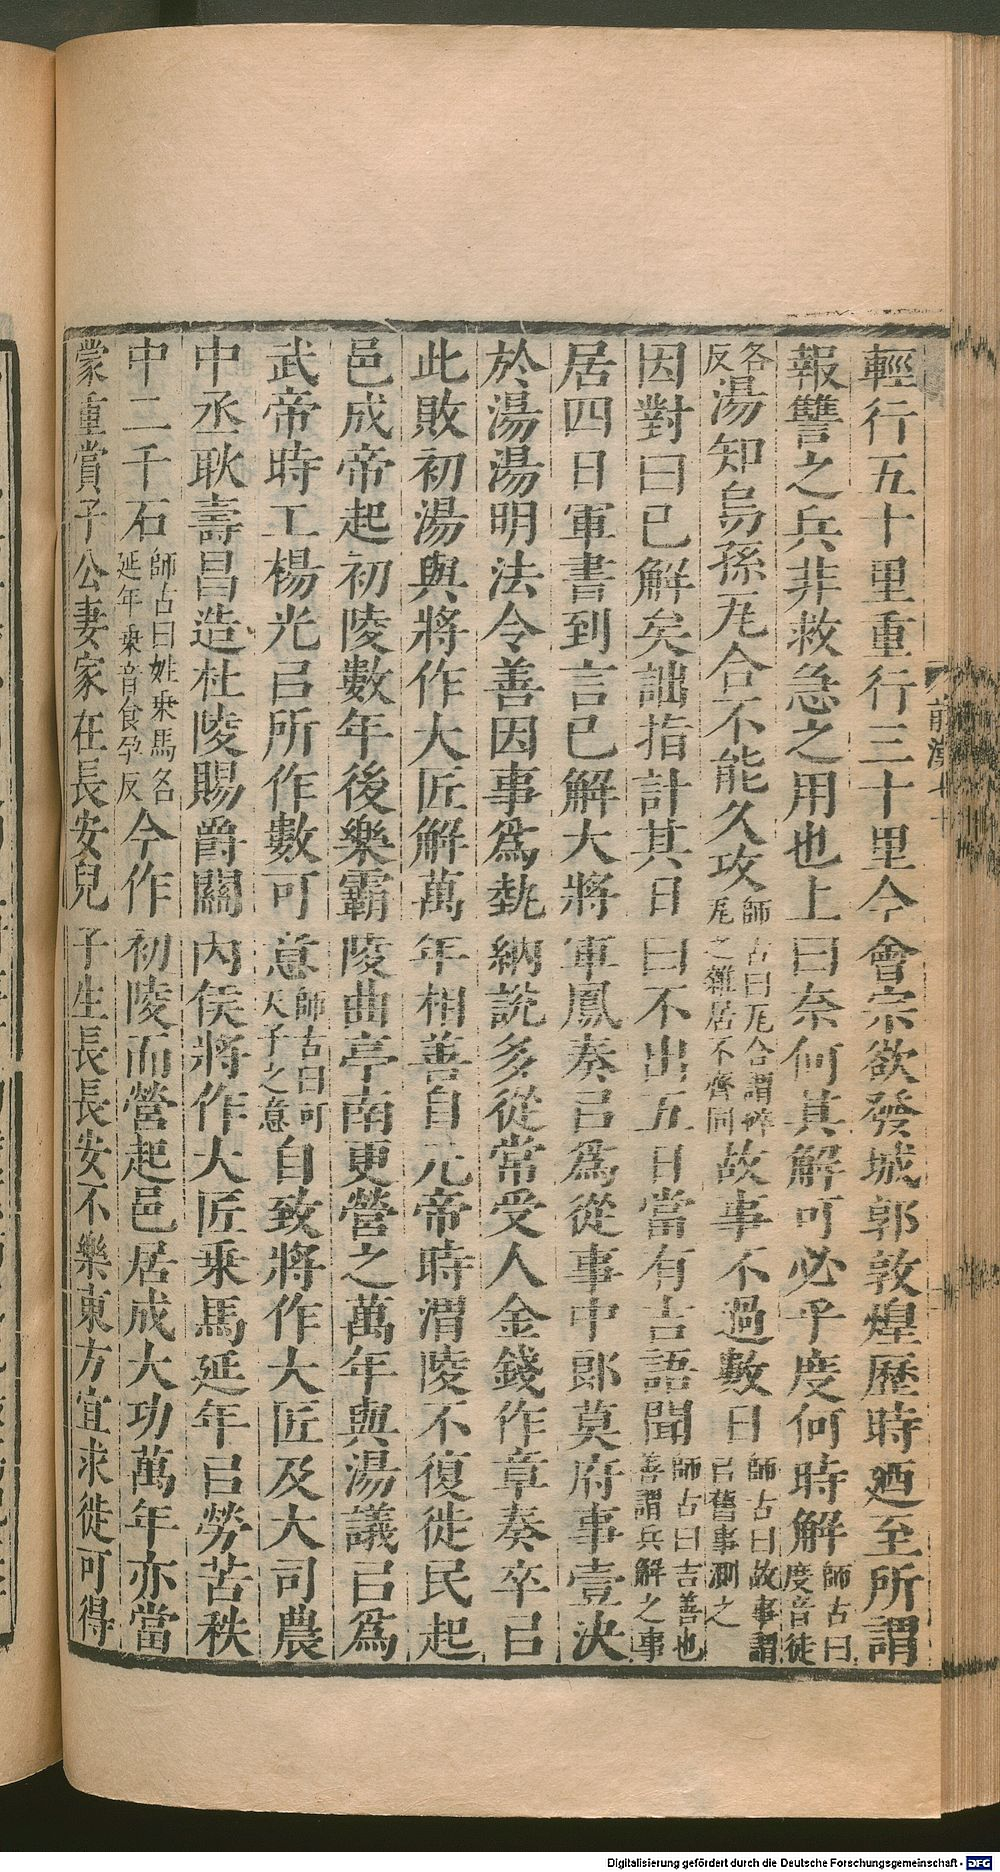 輕行五十里重行三十里今會宗欲發城郭敦煌歷時迺至所謂
報讐之兵非救急之用也上曰奈何其解可必乎度何時解師古曰度音徒
各反湯知烏孫瓦合不能久攻師古曰瓦合謂碎瓦之雜居不齊同故事不過數日師古曰故事謂㠯舊事測之
因對曰已解矣詘指計其日曰不出五日當有吉語聞師古曰吉善也善謂兵解之事
居四日軍書到言已解大將軍鳳奏㠯爲從事中郎莫府事壹決
於湯湯明法令善因事爲埶納説多從常受人金錢作章奏卒㠯
此敗初湯與將作大匠解萬年相善自元帝時渭陵不復徙民起
邑成帝起初陵數年後樂霸陵曲亭南更營之萬年與湯議㠯爲
武帝時工楊光㠯所作數可意師古曰可天子之意自致將作大匠及大司農
中丞耿壽昌造杜陵賜爵關內侯將作大匠乗馬延年㠯勞苦秩
中二千石師古曰姓乗馬名延年乗音食孕反今作初陵而營起邑居成大功萬年亦當
蒙重賞子公妻家在長安兒子生長長安不樂東方宜求徙可得
前漢七十
Digitalisierung gefördert durch die Deutsche Forschungsgemeinschaft - DFG